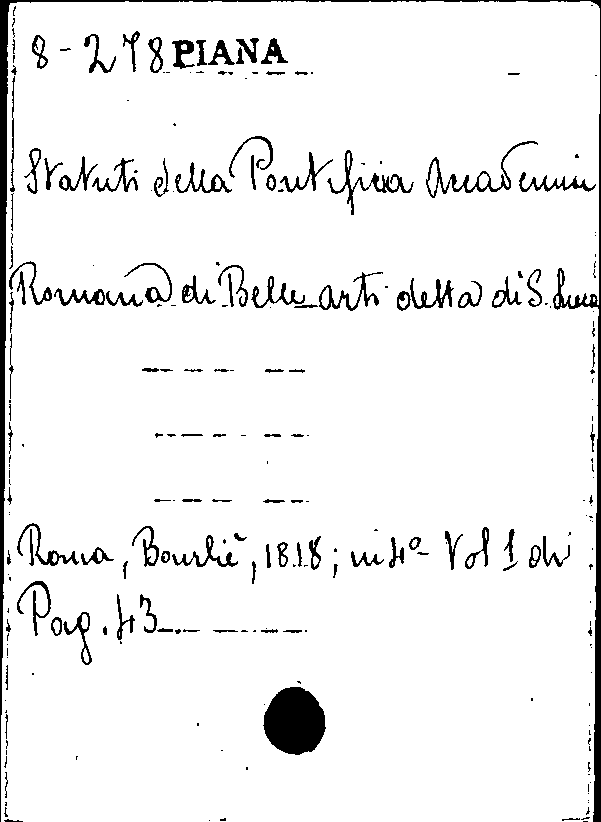 8-278 PIANA
Statuti della Pontificia Accademia
Romana di Belle arti detta di S. Luca
Roma, Bourliè, 1818; in 4º- Vol 1 di
Pag. 43